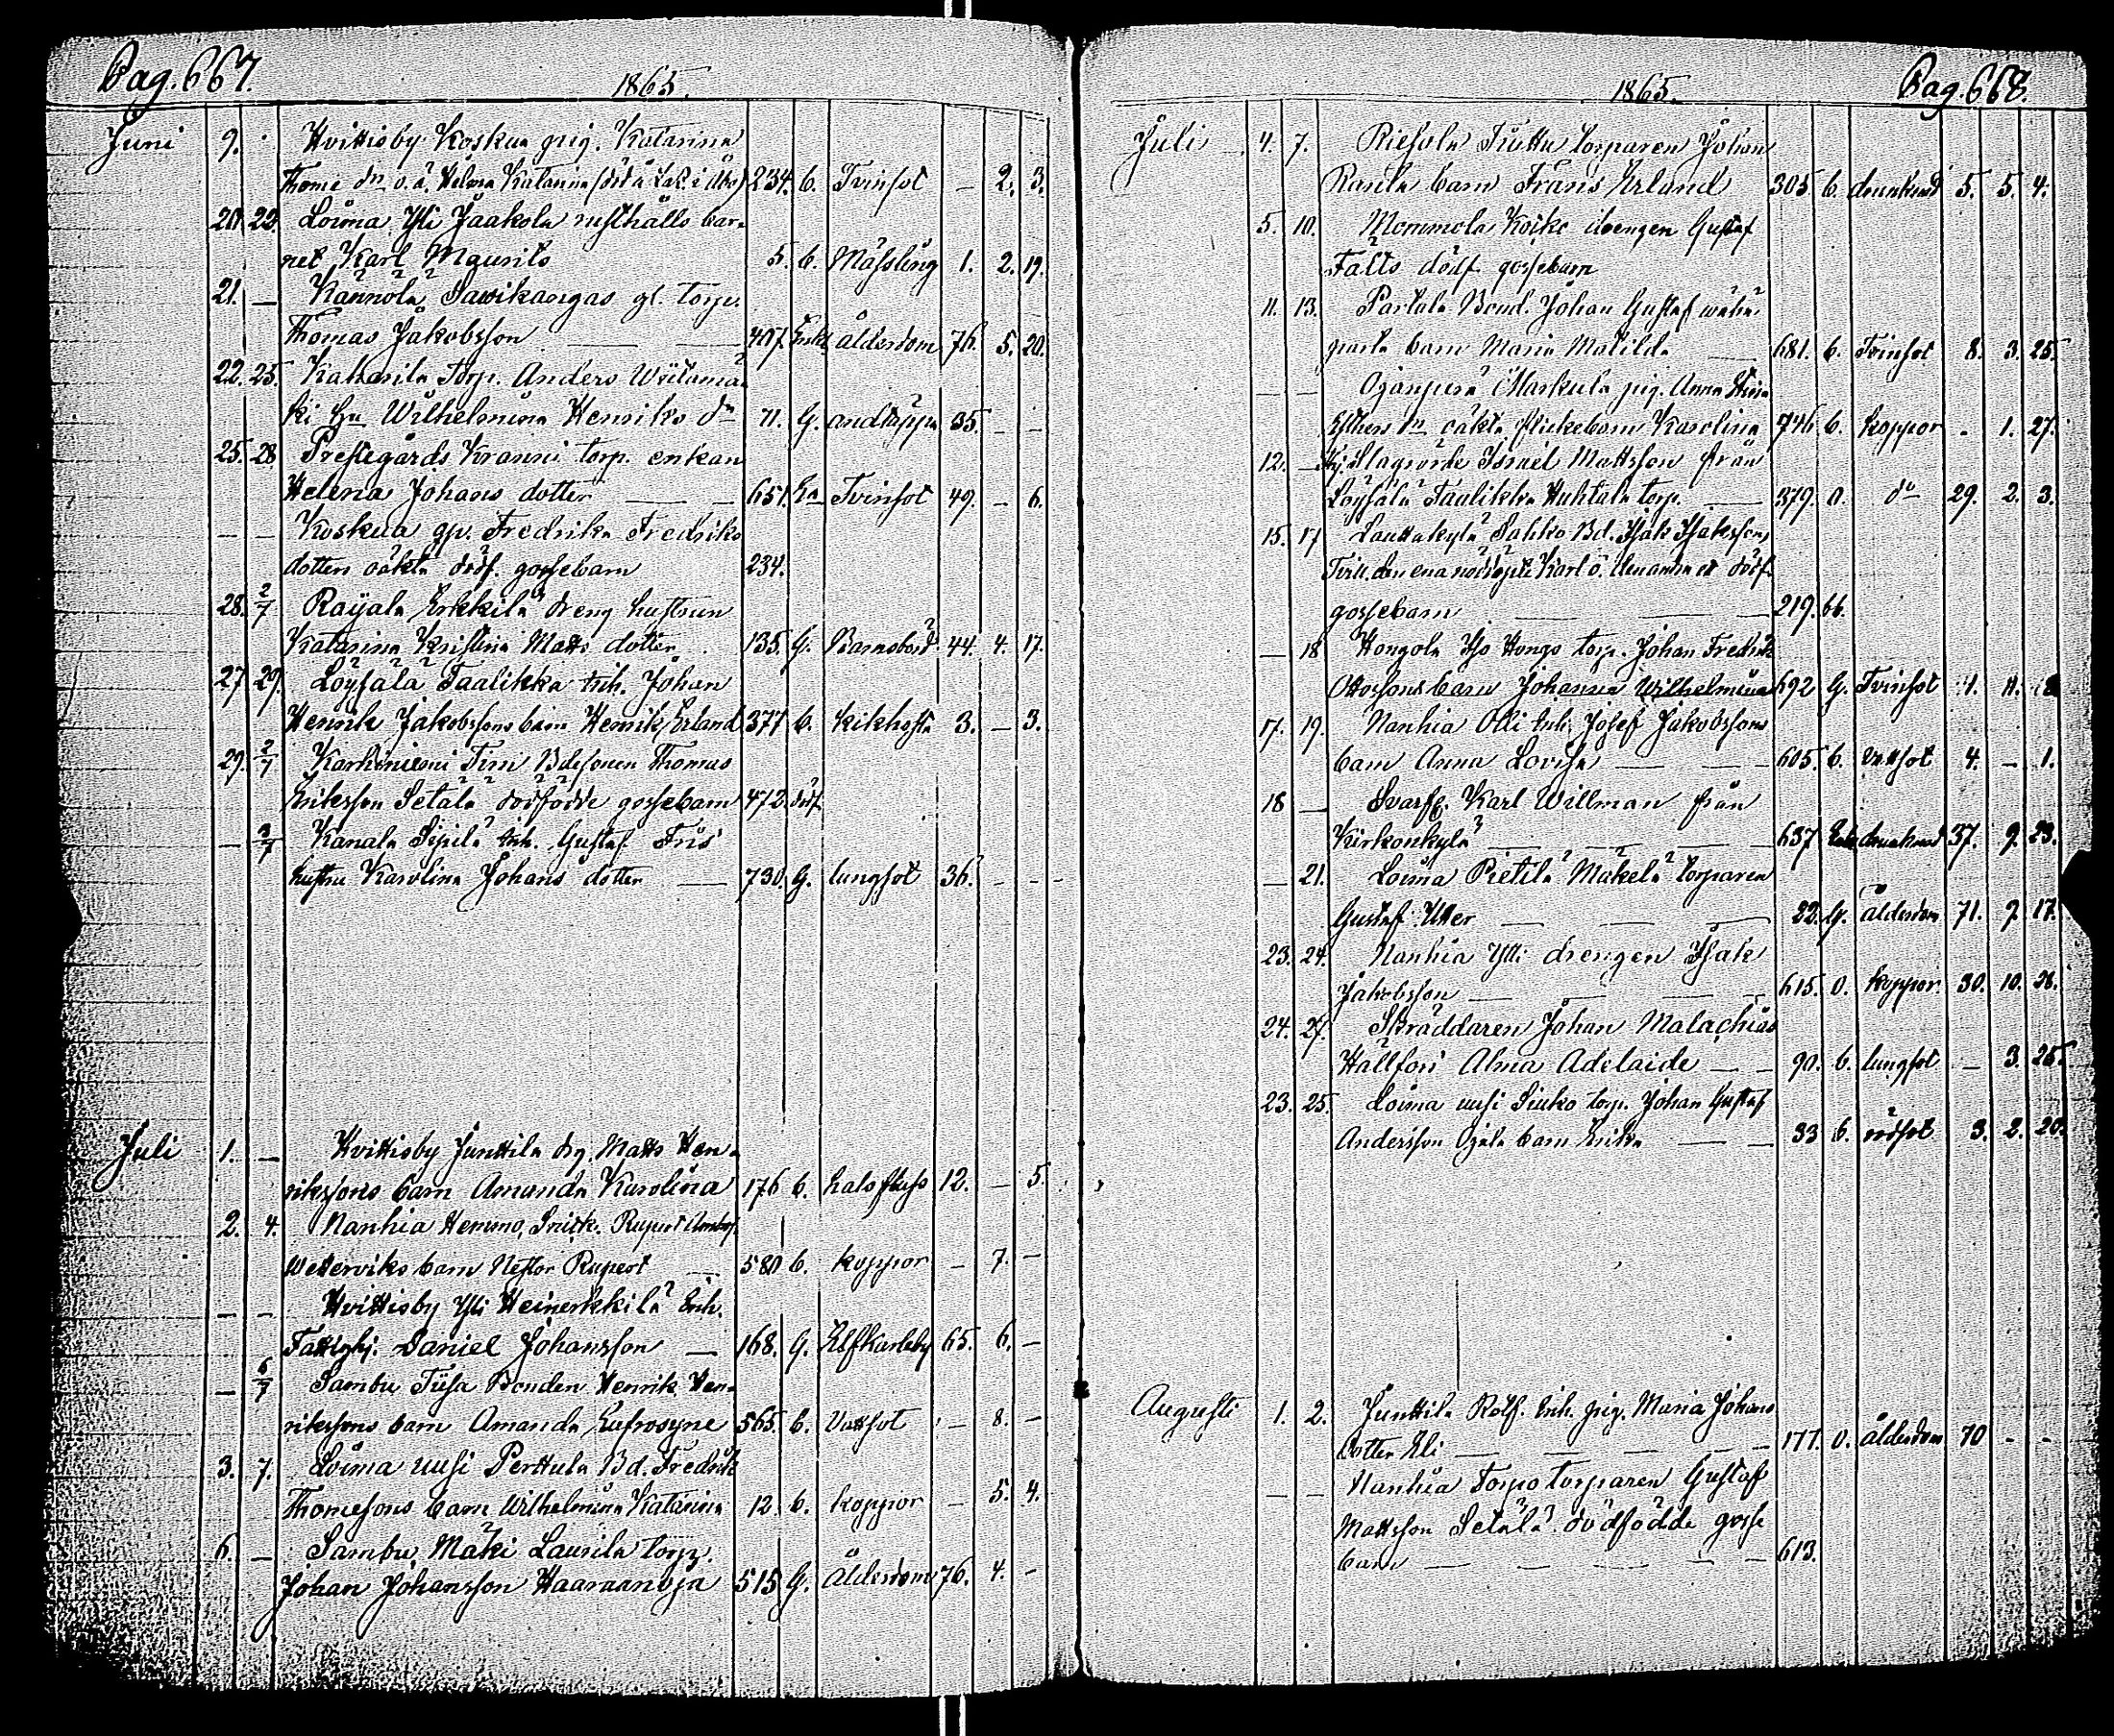 Pag. 667.
1865.
Juni 9. Hvittisby Koskua pig. Katarina
Thome dr o. ä. Helena Katarina 234. b. Tvinsot — 2. 3.
20. 22. Loima Yli Jaakola rusthålls bar-
net Karl Maurits 5. b. Mässling 1. 2. 19.
21. — Kännölä Savikangas gl. torp.
Thomas Jakobsson — — 407. Enkl. ålderdom 76. 5. 20.
22. 25. Kaharila Torp. Anders
ki hu Wilhelmina Henriks dr 71. G. andtäppa 35. — —
25. 28. Prestegårds Kranni torp. enkan
Helena Johans dotter — — 651. En Tvinsot 49. — 6.
— — Koskua gp. Fredrika Fredriks
dotters oäkta dödf. gossebarn 234.
28. 2/7 Raijala Erkkilä dreng hustrun
Katarina Kristina Matts dotter 135. G. Barnsbörd 44. 4. 17.
27. 29. Löysälä Taalikka inh. Johan
Henrik Jakobssons barn Henrik Erland 377 b. kikhosta 3. — 3.
29. 2/7 Karhiniemi Tini Bdesonen Thomas
Eriksson Setälä dödfödde gossebarn 472. dödf.
— 3/7 Kanala Sipilä inh. Gustaf Friis
hustru Karolina Johans dotter — 730. G. lungsot 36. — —
Juli 1. — Hvittisby Junttila dg. Matts Hen-
rikssons barn Amanda Karolina 176 b. halsfluss 12. — 5.
2. 4. Nanhia Hemmo, Snick. Rupert
Weterviks barn Nestor Rupert — 580 b. koppor — 7. —
— — Hvittisby Yli Heinerkkilä Inh.
Fattighj. Daniel Johansson — 168. G. Elfkarleby 65. 6. —
— 6/7 Sambu Tiisa Bonden Henrik Hen-
rikssons barn Amanda Eufrosyne 565. b. Vattsot — 8. —
3. 7. Loima uusi Perttula Bd. Fredrik
Thomesons barn Wilhelmina Katarina 12. b. koppor — 5. 4.
6. — Sambu, Mäki Laurila torp.
Johan Johansson Haaraanoja 515 G. Ålderdom 76. 4. —
1865.
Pag. 668.
Juli 4. 7. Riesola Truttu torparen Johan
Ranta barn Frans Erland 305 b. drunknad 5. 5. 4.
5. 10. Mommola Koiko drengen Gustaf
Fälts dödf. gossebarn
11. 13. Partala Bond. Johan Gustaf wähä-
parta barn Maria Matilda — 681. b. Tvinsot 8. 3. 25.
— — Ojanperä Markula pig. Anna
Esthers dr oäkta flickebarn Karolina 746 b. koppor — 1. 27.
12. — Slagrörde Israel Mattsson från
Löysälä Taalikka Huhtala torp. — 379. O. do 29. 2. 3.
15. 17 Lauttakylä Sahko Bd. Isak Isakssons
Tvill. den ena nödöpte Karl o. den andra et dödf.
gossebarn — — 219. bb.
— 18 Hongola Iso Hongo torp. Johan Fredrik
Ottossons barn Johanna Wilhelmina 692 G. Tvinsot 1. 11. 8
17. 19. Nanhia Olli Inh. Josef Jakobssons
barn Anna Lovisa — — 605. b. Vattsot 4. — 1.
18 — Svarfv. Karl Willman från
Kirkonkylä — — — 637 Enkl. drunknad 37. 9. 23.
— 21. Loima Pietilä Mäkelä torparen
Gustaf Utter — — — 22. G. ålderdom 71. 9. 17.
23. 24. Nanhia Yli drengen Isak
Jakobsson — — — 615. O. koppor 30. 10. 28.
24. 27. Skräddaren Johan Malachias
Hällfors Alma Adelaide — — 90. b. lungsot — 3. 25.
23. 25. Loima uusi Sinko torp. Johan Gustaf
Andersson Ojala barn Erika — — 33 b. rödsot 3. 2. 20.
Augusti 1. 2. Junttila Rolf. Inh. pig. Maria Johans
dotter Eli — — — 177. O. ålderdom 70 — —
— — Nanhia Torpo torparen Gustaf
Mattsson Setälä dödfödde gosse
barn — — — — 613.